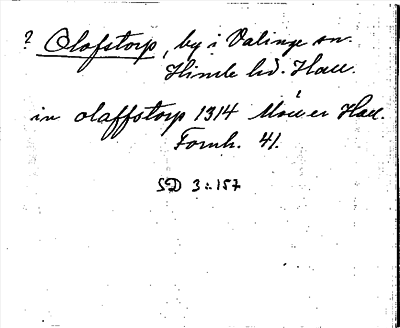 ? Olofstorp, by i Valinge sn.
Himle hd. Hall.
in olaffstorp 1314 Hall.
Fornh. 41.
SD 3:157